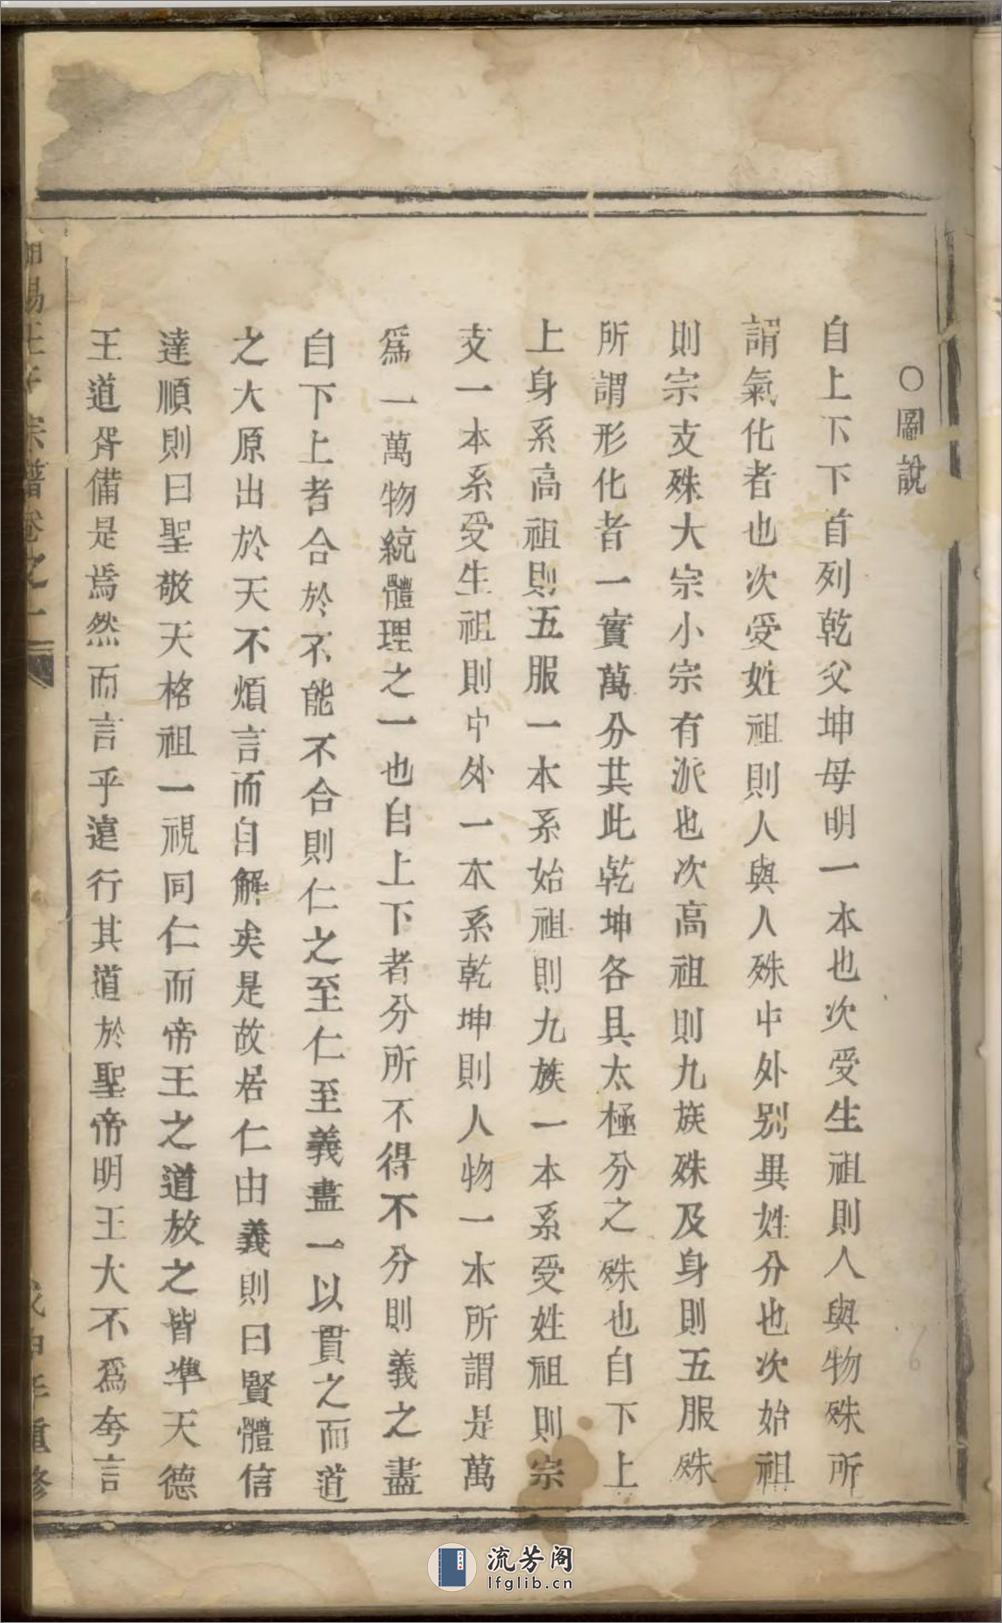 ○圖說
自上下下首列乾父坤母明一本也次受生祖則人與物殊所
謂氣化者也次受姓祖則人與人殊中外别異姓分也次始祖
則宗支殊大宗小宗有派也次高祖則九族殊及身則五服殊
所謂形化者一實萬分其此乾坤各具太極分之殊也自下上
上身系高祖則五服一本系始祖則九族一本系受姓祖則宗
支一本系受生祖則中外一本系乾坤則人物一本所謂是萬
爲一萬物統體理之一也自上下者分所不得不分則義之盡
自下上者合於不能不合則仁之至仁至義盡一以貫之而道
之大原出於天不煩言而自解矣是故居仁由義則曰賢體信
達順則曰聖敬天格祖一視同仁而帝王之道放之皆準天德
王道胥備是焉然而言乎遠行其道於聖帝明王大不爲夸言
陽王氏宗譜卷之一
戊申年重修
流芳阁
lfglib.cn